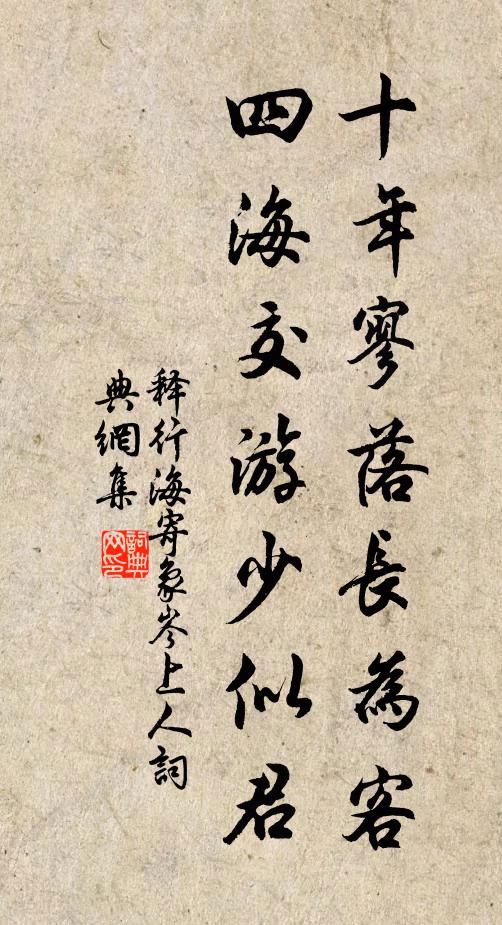 十年寥落長為客
四海交游少似君
释行海寄象岑上人詞
典網集
詞典
网印